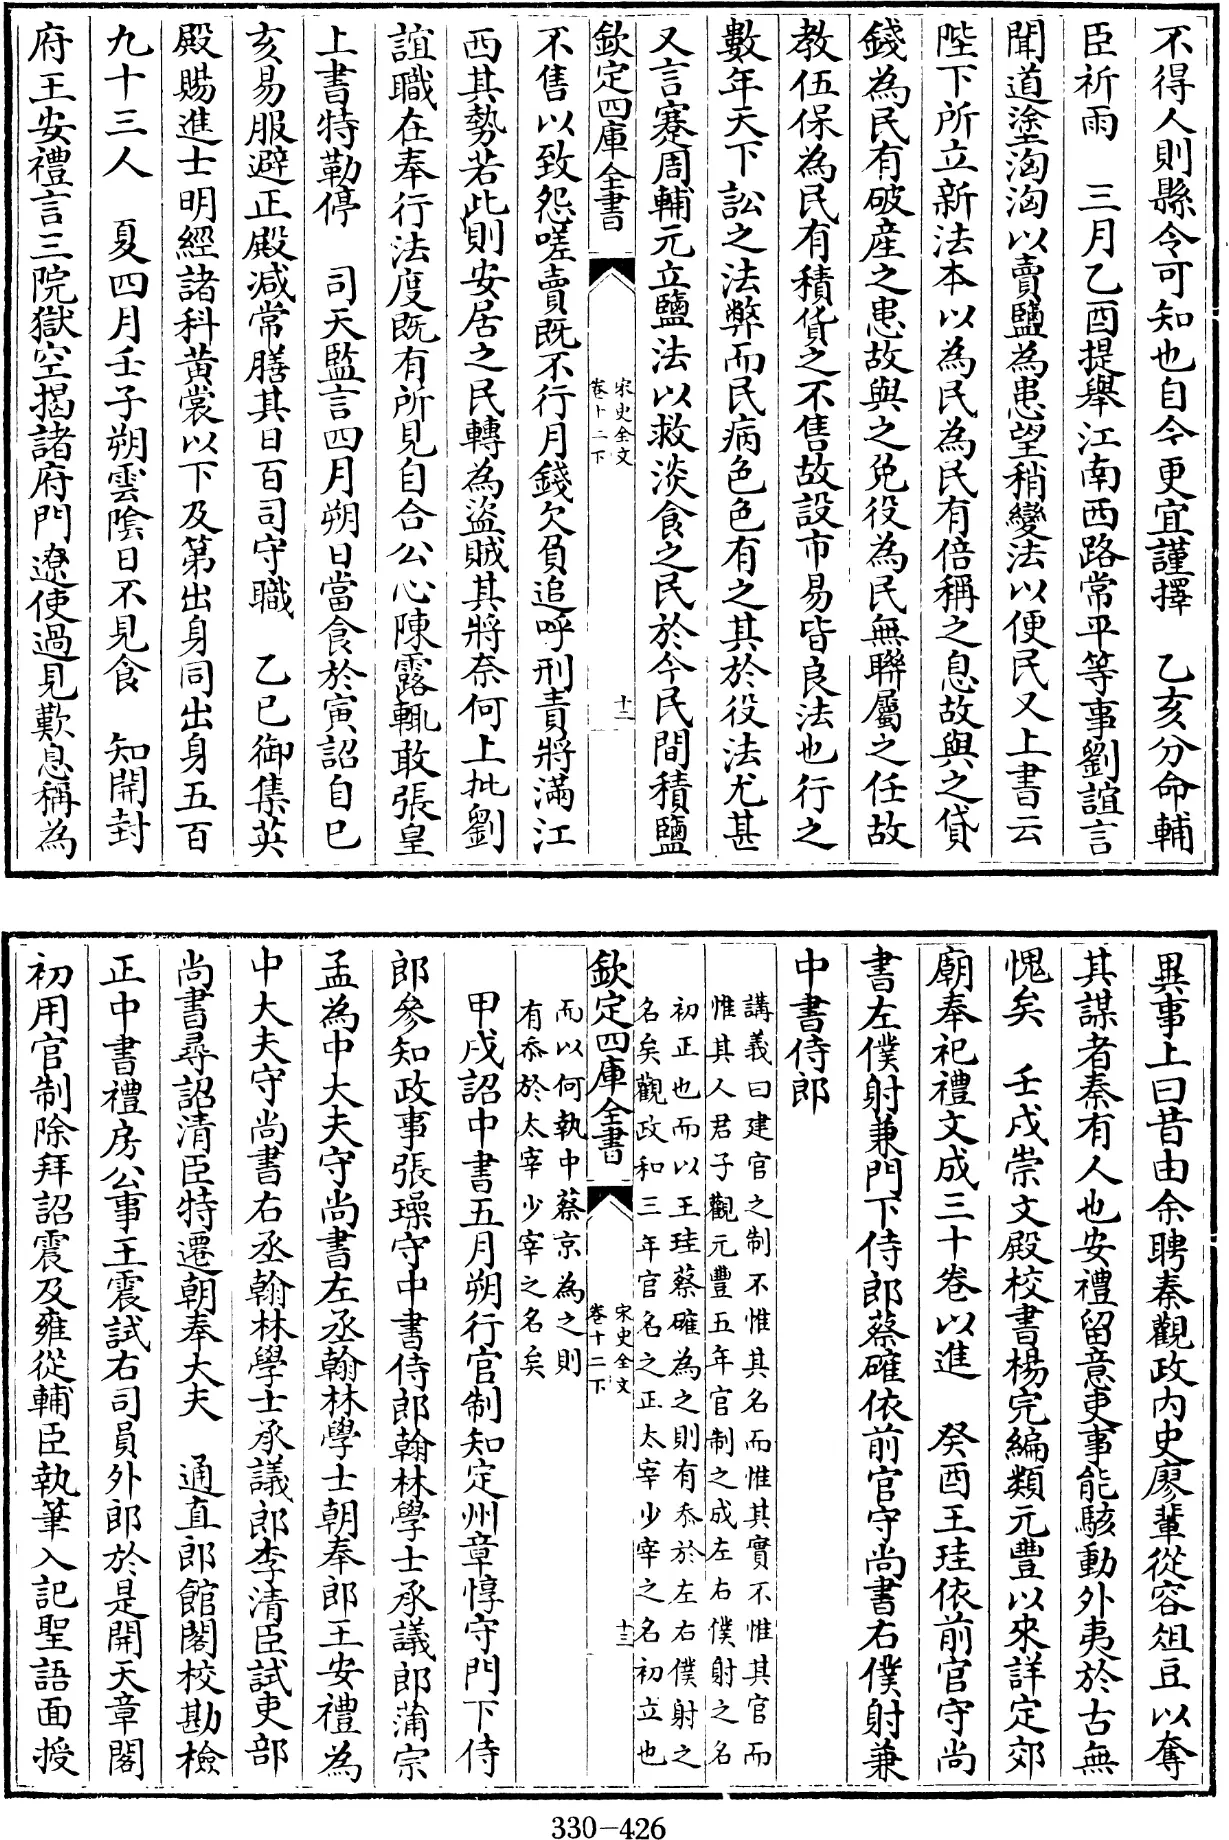 不得人則縣令可知也自今更宜謹擇　乙亥分命輔
臣祈雨　三月乙酉提舉江南西路常平等事劉誼言
聞道塗洶洶以賣鹽為患望稍變法以便民又上書云
陛下所立新法本以為民為民有倍稱之息故與之貸
錢為民有破產之患故與之免役為民無聯屬之任故
教伍保為民有積貨之不售故設市易皆良法也行之
數年天下訟之法弊而民病色色有之其於役法尤甚
又言蹇周輔元立鹽法以救淡食之民於今民間積鹽
欽定四庫全書
宋史全文
卷十二下
十二
不售以致怨嗟賣既不行月錢欠負追呼刑責將滿江
西其勢若此則安居之民轉為盜賊其將奈何上批劉
誼職在奉行法度既有所見自合公心陳露輒敢張皇
上書特勒停　司天監言四月朔日當食於寅詔自已
亥易服避正殿減常膳其日百司守職　乙巳御集英
殿賜進士明經諸科黄裳以下及第出身同出身五百
九十三人　夏四月壬子朔雲陰日不見食　知開封
府王安禮言三院獄空揭諸府門遼使過見歎息稱為
異事上曰昔由余聘秦觀政内史廖輩從容俎豆以奪
其謀者秦有人也安禮留意吏事能駭動外夷於古無
愧矣　壬戌崇文殿校書楊完編類元豐以來詳定郊
廟奉祀禮文成三十卷以進　癸酉王珪依前官守尚
書左僕射兼門下侍郎蔡確依前官守尚書右僕射兼
中書侍郎
講義曰建官之制不惟其名而惟其實不惟其官而
惟其人君子觀元豐五年官制之成左右僕射之名
初正也而以王珪蔡確為之則有忝於左右僕射之
名矣觀政和三年官名之正太宰少宰之名初立也
欽定四庫全書
宋史全文
卷十二下
十三
而以何執中蔡京為之則
有忝於太宰少宰之名矣
甲戌詔中書五月朔行官制知定州章惇守門下侍
郎參知政事張璪守中書侍郎翰林學士承議郎蒲宗
孟為中大夫守尚書左丞翰林學士朝奉郎王安禮為
中大夫守尚書右丞翰林學士承議郎李清臣試吏部
尚書尋詔清臣特遷朝奉大夫　通直郎館閣校勘檢
正中書禮房公事王震試右司員外郎於是開天章閣
初用官制除拜詔震及雍從輔臣執筆入記聖語面授
330-426